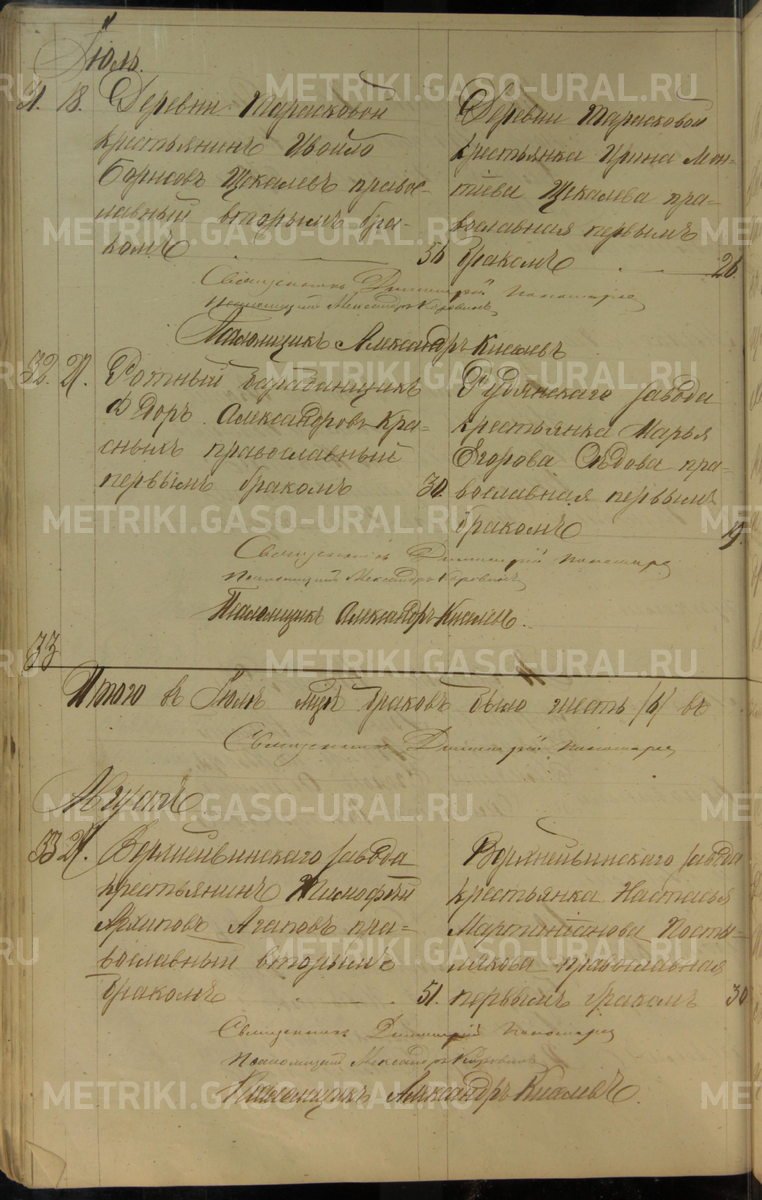 Іюль.
31. 18. Деревни Тарасковой
крестьянинъ
Борисовъ Щекалевъ право-
славный вторымъ бра-
комъ 56
Деревни Тарасковой
крестьянка Ирина Мон-
тіева Щекалева пра-
вославная первымъ
бракомъ 26.
Священникъ Димитрій Пономарев
Псаломщикъ Александръ Киселевъ
32. 27. Ротный барабанщикъ
Ѳедоръ Александровъ Кра-
сныхъ православный
первымъ бракомъ 30.
Рудянскаго завода
крестьянка Марья
Егорова Сѣдова пра-
вославная первымъ
бракомъ 19.
Священникъ Димитрій Пономарев
Псаломщикъ Александръ Киселев.
33
Итого въ Іюлѣ мцѣ браковъ было шесть /6/ въ
Священникъ Димитрій Пономарев
Августъ.
33 27. Верхнейвинскаго завода
крестьянинъ Тимофей
Архиповъ Агаповъ пра-
вославный вторымъ
бракомъ 51.
Верхнейвинскаго завода
крестьянка Настасья
Мартиніанова Посты-
лякова православная
первымъ бракомъ 30.
Священникъ Димитрій Пономарев
Псаломщикъ Александръ Киселевъ.
METRIKI.GASO-URAL.RU